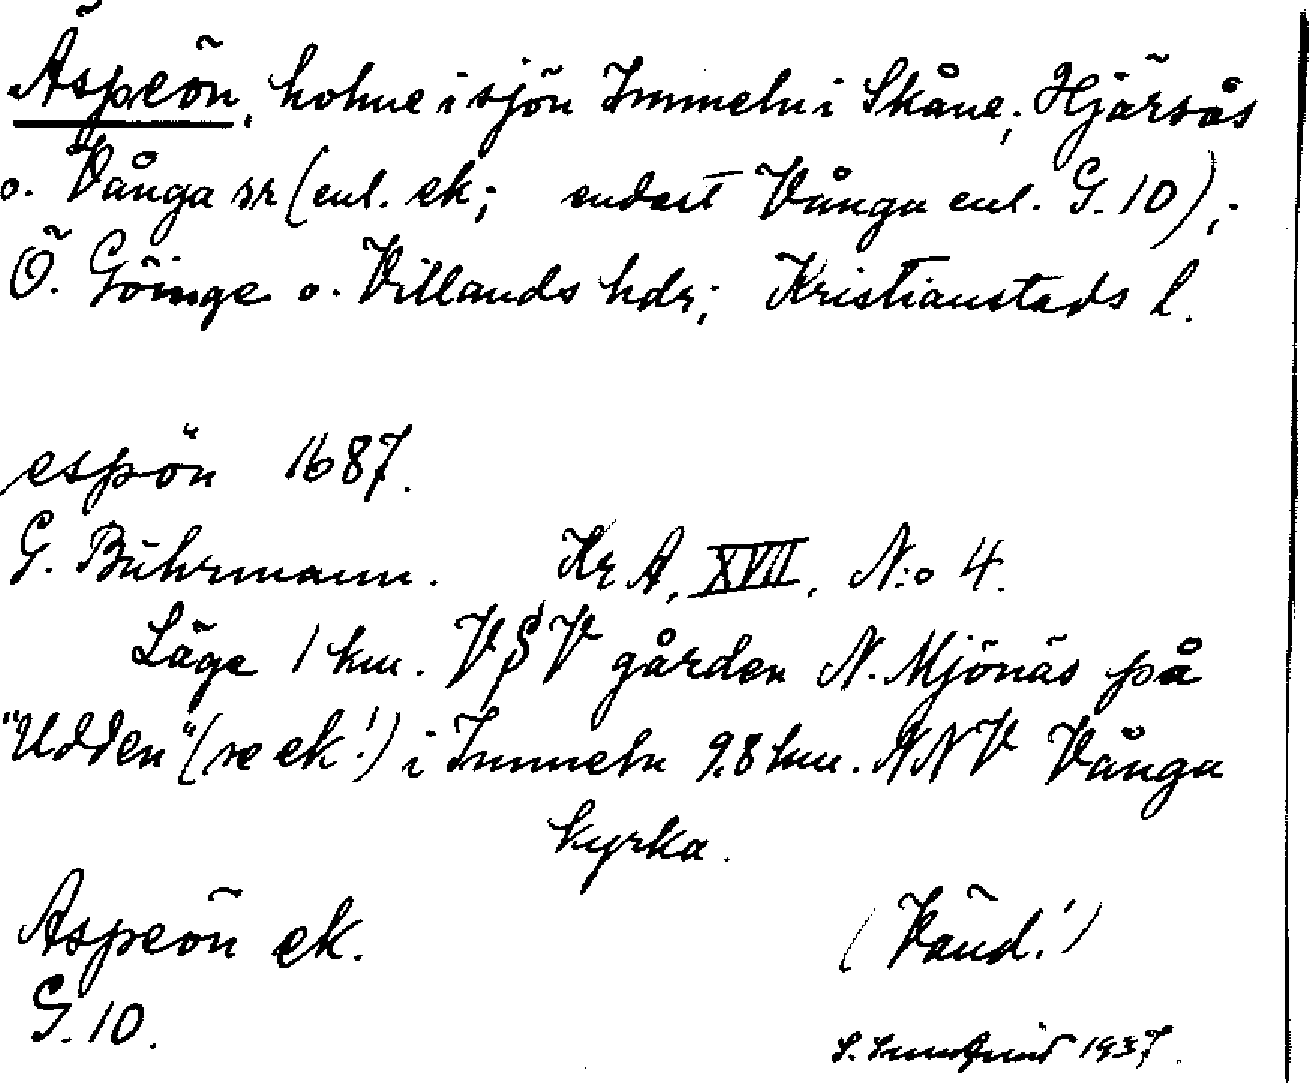 Äspeön, holme i sjön Immeln i Skåne; Hjärsås
o. Vånga sr (enl. ek; endast Vånga enl. G. 10);
Ö. Göinge o. Villands hdr; Kristianstads l.
espön 1687.
G. Buhrmann. Kr A, XVII, N:o 4.
Läge 1 km. VSV gården N. Mjönäs på
"Udden" (se ek!) i Immeln 9.8 km. NNV Vånga
kyrka.
Aspeön ek.
(Vänd!)
G. 10.
1937.